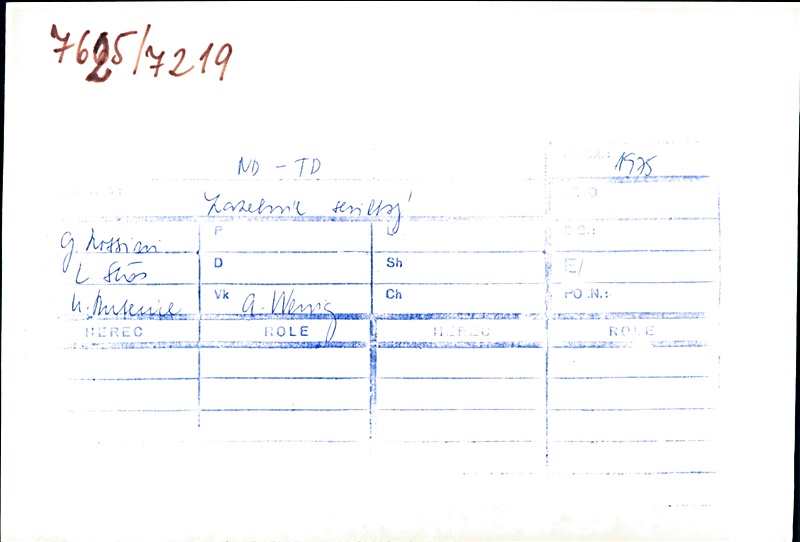 7625/7219
ND - TD
1975
Lazebník sevillský
G. Rossini
P
L
L. Štros
D
Sh
E/
Vk
A. Wenig
Ch
PO.N.:
HEREC ROLE HEREC ROLE